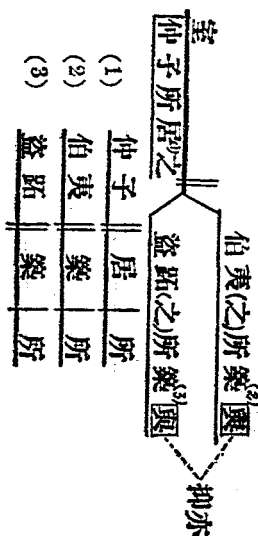 室
仲子所居(1)之
伯夷(之)所築(2)與
盜跖(之)所築(3)與
抑亦
(1) 仲子 居 所
(2) 伯夷 築 所
(3) 盜跖 築 所